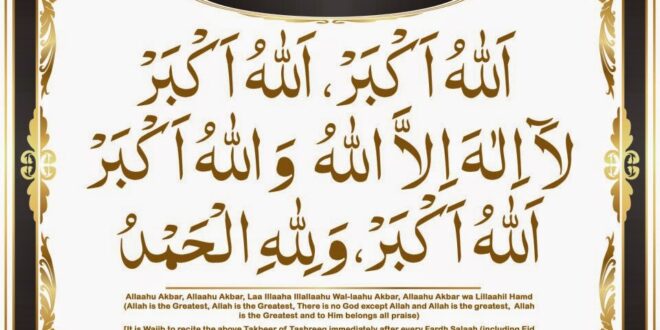 اَللّٰهُ اَكْبَرْ، اَللّٰهُ اَكْبَرْ
لَآ اِلٰهَ اِلَّا اللّٰهُ وَ اللّٰهُ اَكْبَرْ
اَللّٰهُ اَكْبَرْ، وَلِلّٰهِ الْحَمْدُ
Allaahu Akbar, Allaahu Akbar, Laa Illaaha Illallaahu Wal-laahu Akbar, Allaahu Akbar wa Lillaahil Hamd
(Allah is the Greatest, Allah is the Greatest, There is no God except Allah and Allah is the greatest, Allah
is the Greatest and to Him belongs all praise)
[It is Wajib to recite the above Takbeer of Tashreeq immediately after every Fardh Salaah (including Eid